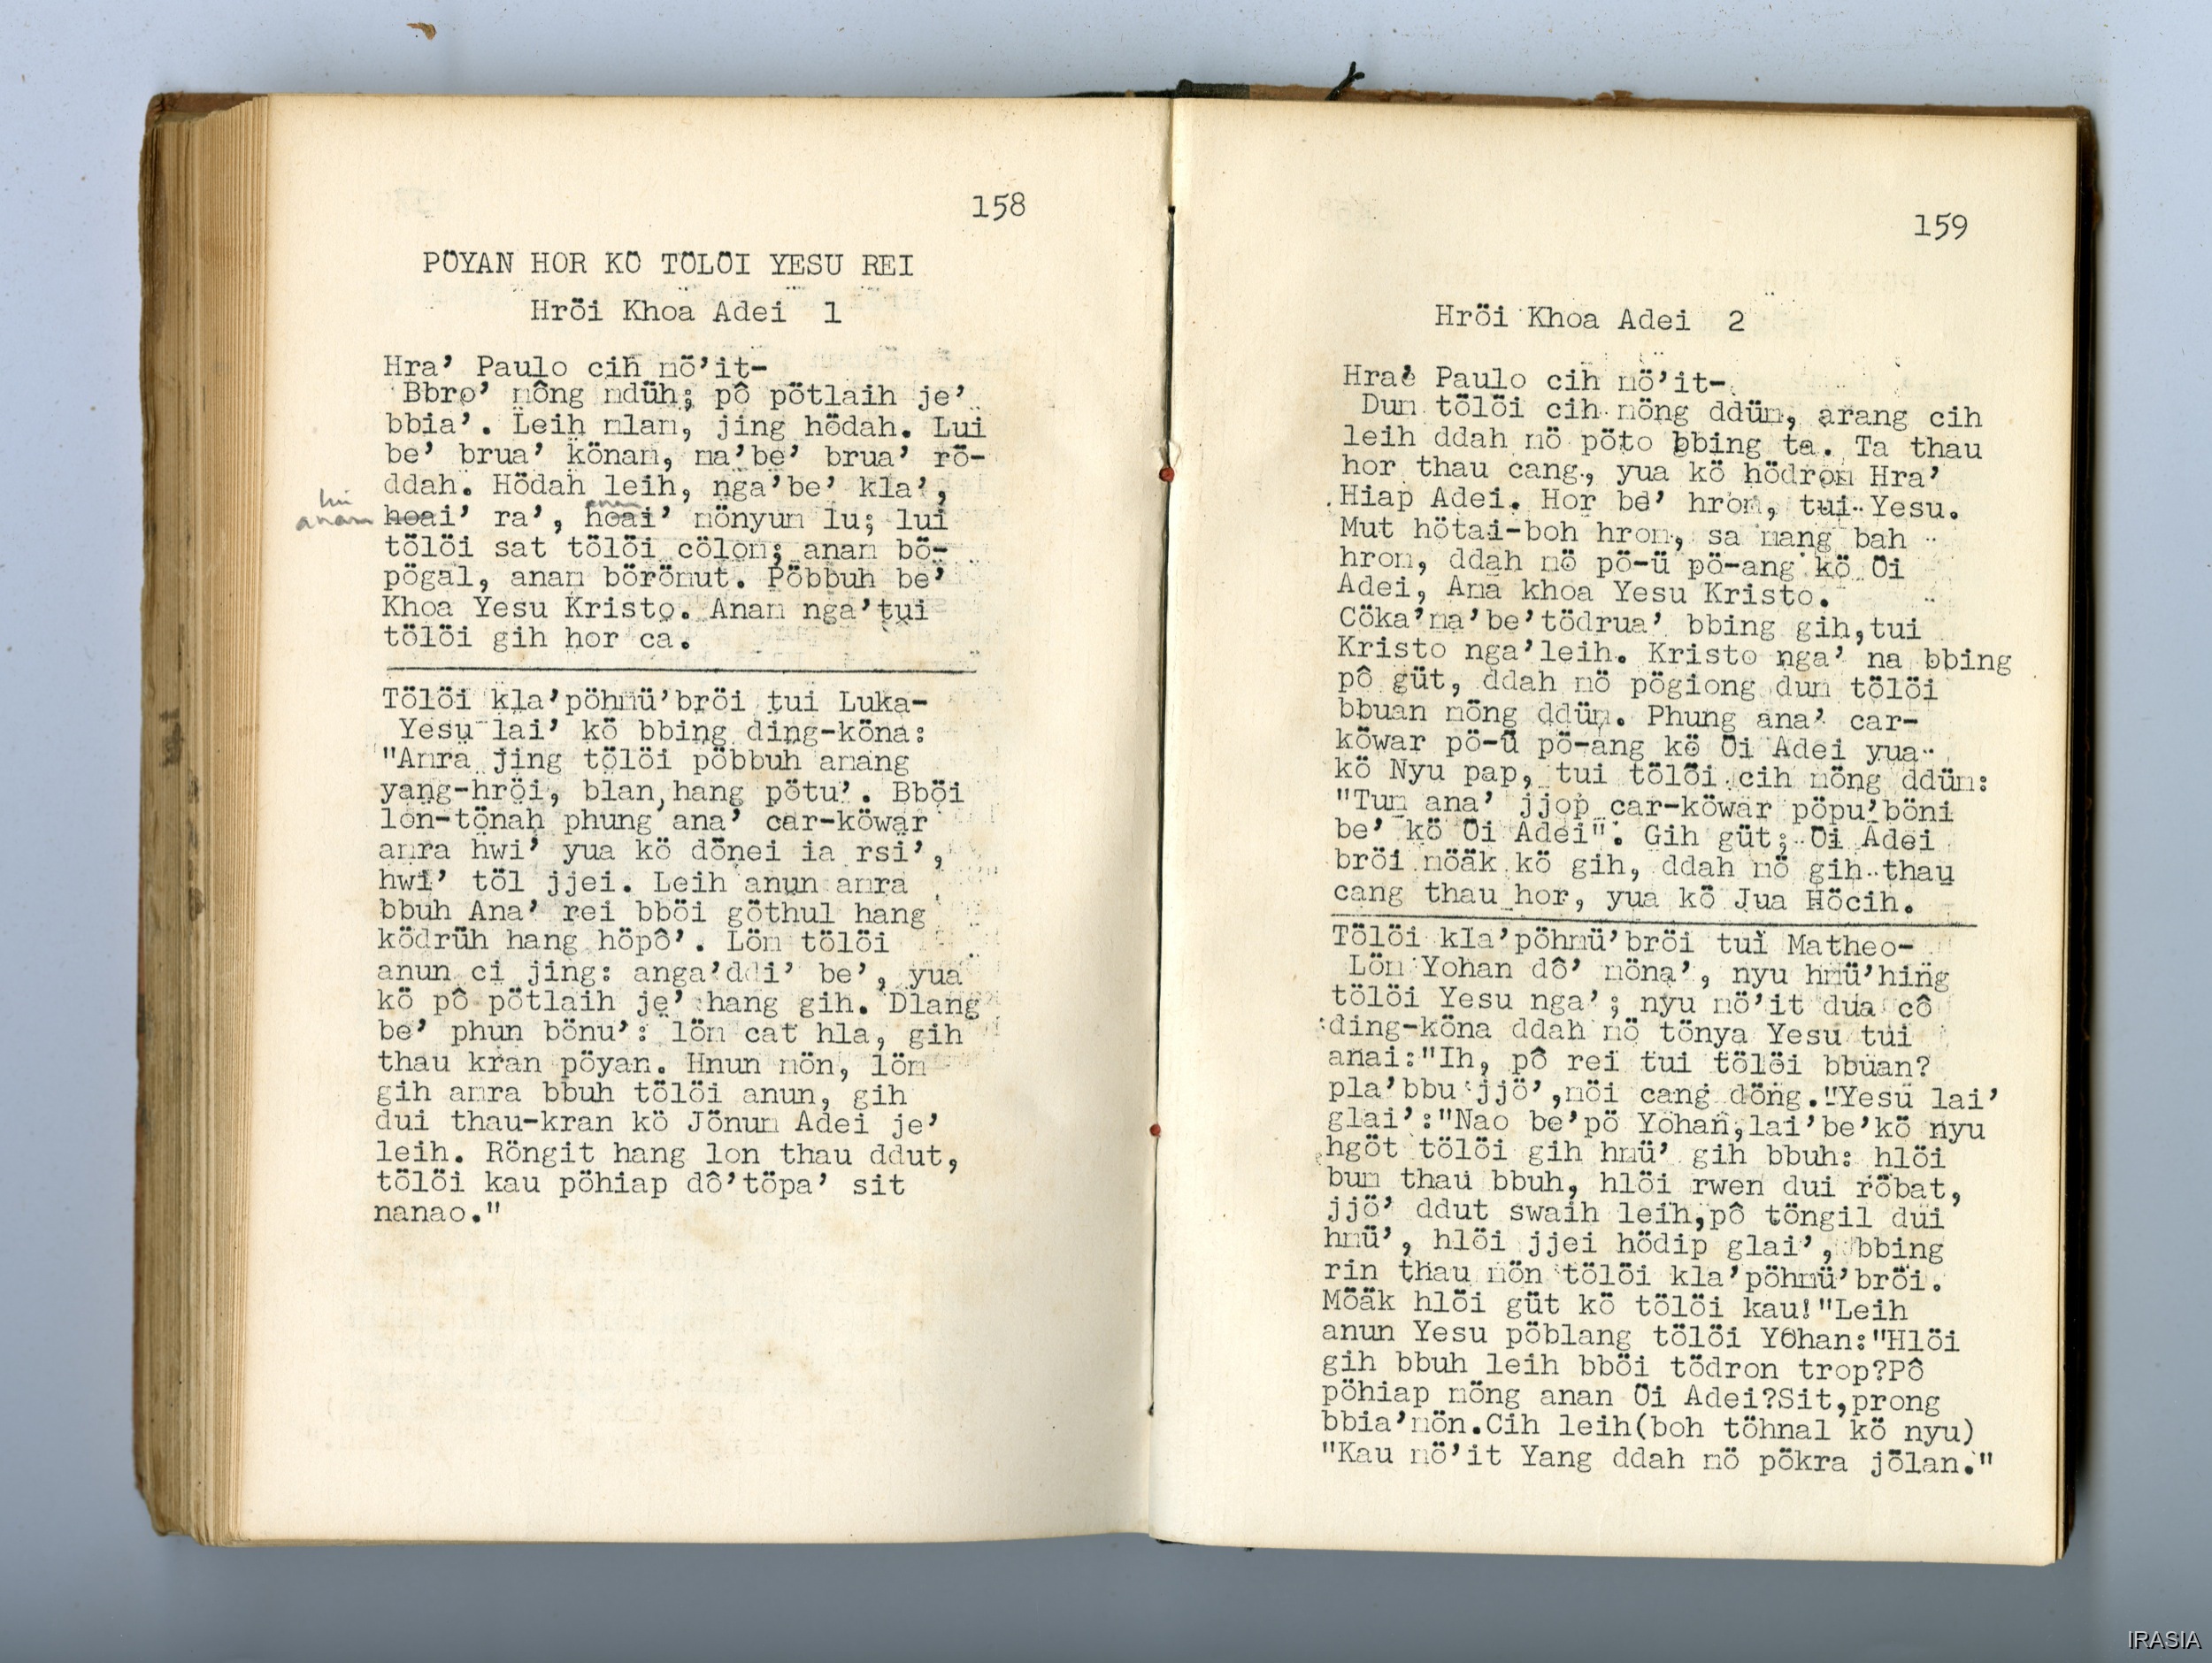 158
PÖYAN HOR KÖ TÖLÖI YESU REI
Hröi Khoa Adei 1
Hra’ Paulo cih mö’it-
Bbro’ möng mdüh; pô pötlaih je’
bbia’. Leih mlam, jing hödah. Lui
be’ brua’ könam, ma’be’ brua’ rö-
ddah. Hödah leih, nga’be’ kla’,
lui
anam hoai’ ra’, hoai’ mönyum iu; lui
anam
tölöi sat tölöi cölom; anam bö-
pögal, anam börömut. Pöbbuh be’
Khoa Yesu Kristo. Anam nga’tui
tölöi gih hor ca.
Tölöi kla’pöhmü’bröi tui Luka-
Yesu lai’ kö bbing ding-köna:
"Amra jing tölöi pöbbuh amang
yang-hröi, blan,hang pötu’. Bböi
lön-tönah phung ana’ car-köwar
amra hwi’ yua kö dönei ia rsi’,
hwi’ töl jjei. Leih anun amra
bbuh Ana’ rei bböi göthul hang
ködrüh hang höpô’. Löm tölöi
anun ci jing: anga’ddi’ be’, yua
kö pô pötlaih je’ hang gih. Dlang
be’ phun bönu’: löm cat hla, gih
thau kran pöyan. Hnun mön, löm
gih amra bbuh tölöi anun, gih
dui thau-kran kö Jönum Adei je’
leih. Röngit hang lon thau ddut,
tölöi kau pöhiap dô’töpa’ sit
nanao."
159
Hröi Khoa Adei 2
Hra’ Paulo cih mö’it-
Dum tölöi cih möng ddüm, arang cih
leih ddah mö pöto bbing ta. Ta thau
hor thau cang, yua kö hödrom Hra’
Hiap Adei. Hor be’ hrom, tui Yesu.
Mut hötai-boh hrom, sa mang bah
hrom, ddah mö pö-ü pö-ang kö Öi
Adei, Ama khoa Yesu Kristo.
Cöka’ma’be’tödrua’ bbing gih,tui
Kristo nga’leih. Kristo nga’ ma bbing
pô güt, ddah mö pögiong dum tölöi
bbuan möng ddüm. Phung ana’ car-
köwar pö-ü pö-ang kö Öi Adei yua
kö Nyu pap, tui tölöi cih möng ddüm:
"Tum ana’ jjop car-köwar pöpu’böni
be’ kö Öi Adei". Gih güt; Öi Adei
bröi möäk kö gih, ddah mö gih thau
cang thau hor, yua kö Jua Höcih.
Tölöi kla’pöhmü’bröi tui Matheo-
Löm Yohan dô’ möna’, nyu hmü’hing
tölöi Yesu nga’; nyu mö’it dua cô
ding-köna ddah mö tönya Yesu tui
anai:"Ih, pô rei tui tölöi bbuan?
pla’bbu jjö’,möi cang döng."Yesu lai’
glai’:"Nao be’pö Yohan,lai’be’kö nyu
hgöt tölöi gih hmü’ gih bbuh: hlöi
bum thau bbuh, hlöi rwen dui röbat,
jjö’ ddut swaih leih,pô töngil dui
hmü’, hlöi jjei hödip glai’, bbing
rin thau mön tölöi kla’pöhmü’bröi.
Möäk hlöi güt kö tölöi kau!"Leih
anun Yesu pöblang tölöi Yôhan:"Hlöi
gih bbuh leih bböi tödron trop?Pô
pöhiap möng anan Öi Adei?Sit,prong
bbia’mön.Cih leih(boh töhnal kö nyu)
"Kau mö’it Yang ddah mö pökra jölan."
IRASIA